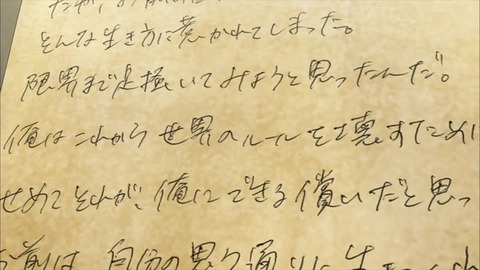 そんな生き方に惹かれてしまった。
限界まで足掻いてみようと思ったんだ。
俺はこれから世界のルールを壊すために
せめてそれが、俺にできる償いだと思っ
お前は、自分の思う通りに生き